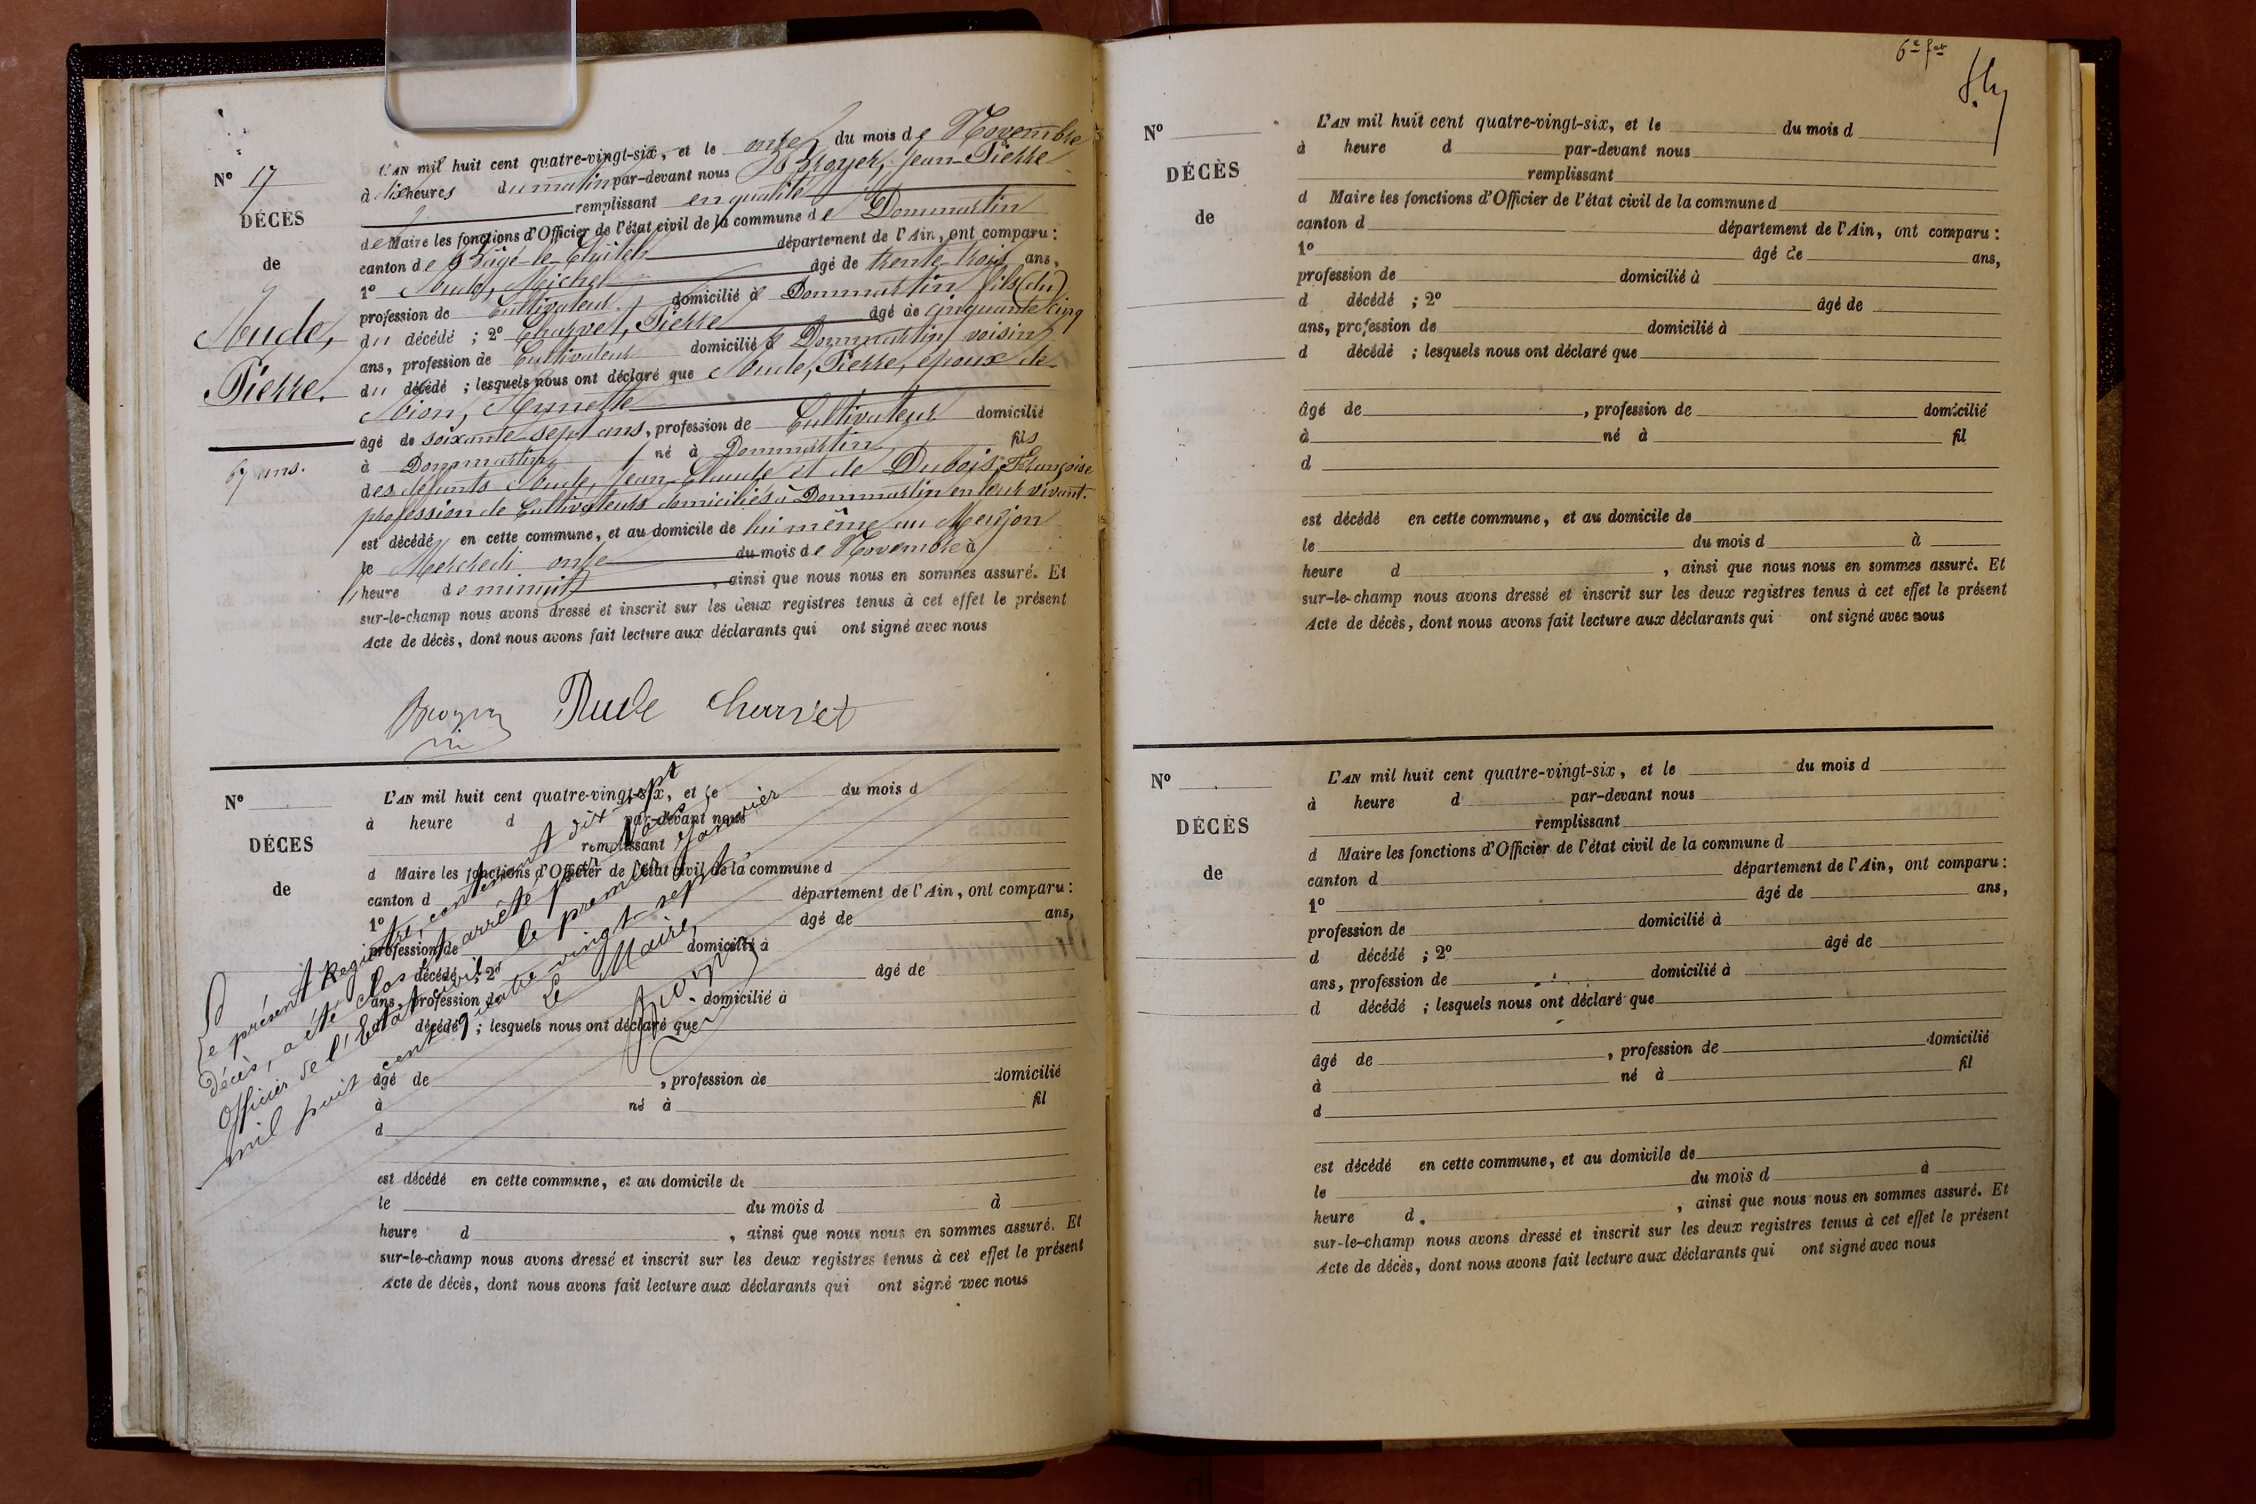 N° 17
DÉCÈS
de
Rude,
Pierre.
67 ans.
L'AN mil huit cent quatre-vingt-six, et le onze du mois de Novembre
à dix heures du matin par-devant nous Broyer, Jean-Pierre
remplissant en qualité
de Maire les fonctions d'Officier de l'état civil de la commune de Dommartin
canton de Bâgé-le-Châtel département de l'Ain, ont comparu :
1° Rude, Michel âgé de trente-trois ans,
profession de Cultivateur domicilié à Dommartin fils (du)
du décédé ; 2° Charvet, Pierre âgé de cinquante cinq
ans, profession de Cultivateur domicilié à Dommartin voisin
du décédé ; lesquels nous ont déclaré que Rude, Pierre, époux de
Bion, Reynette
âgé de soixante-sept ans, profession de Cultivateur domicilié
à Dommartin né à Dommartin fils
des défunts Rude, Jean-Claude et de Dubois Françoise
profession de Cultivateurs domiciliés à Dommartin en leur vivant.
est décédé en cette commune, et au domicile de lui même au
le Mercredi onze du mois de Novembre à
heure de minuit, ainsi que nous nous en sommes assuré. Et
sur-le-champ nous avons dressé et inscrit sur les deux registres tenus à cet effet le présent
Acte de décès, dont nous avons fait lecture aux déclarants qui ont signé avec nous
Broyer Rude Charvet
N°
DÉCÈS
de
L'AN mil huit cent quatre-vingt-six, et le du mois d
à heure d par-devant nous
remplissant
d Maire les fonctions d'Officier de l'état civil de la commune d
canton d département de l'Ain, ont comparu :
1° âgé de ans,
profession de domicilié à
d décédé ; 2° âgé de
ans, profession de domicilié à
d décédé ; lesquels nous ont déclaré que
âgé de , profession de domicilié
à né à fil
d
est décédé en cette commune, et au domicile de
le du mois d à
heure d , ainsi que nous nous en sommes assuré. Et
sur-le-champ nous avons dressé et inscrit sur les deux registres tenus à cet effet le présent
Acte de décès, dont nous avons fait lecture aux déclarants qui ont signé avec nous
Le présent Registre, contenant dix sept
décès, a été clos et arrêté par Nous
Officier de l'Etat civil le premier Janvier
mil huit cent quatre-vingt-sept.
Le Maire,
Broyer
6e fet
N°
DÉCÈS
de
L'AN mil huit cent quatre-vingt-six, et le du mois d
à heure d par-devant nous
remplissant
d Maire les fonctions d'Officier de l'état civil de la commune d
canton d département de l'Ain, ont comparu :
1° âgé de ans,
profession de domicilié à
d décédé ; 2° âgé de
ans, profession de domicilié à
d décédé ; lesquels nous ont déclaré que
âgé de , profession de domicilié
à né à fil
d
est décédé en cette commune, et au domicile de
le du mois d à
heure d , ainsi que nous nous en sommes assuré. Et
sur-le-champ nous avons dressé et inscrit sur les deux registres tenus à cet effet le présent
Acte de décès, dont nous avons fait lecture aux déclarants qui ont signé avec nous
N°
DÉCÈS
de
L'AN mil huit cent quatre-vingt-six, et le du mois d
à heure d par-devant nous
remplissant
d Maire les fonctions d'Officier de l'état civil de la commune d
canton d département de l'Ain, ont comparu :
1° âgé de ans,
profession de domicilié à
d décédé ; 2° âgé de
ans, profession de domicilié à
d décédé ; lesquels nous ont déclaré que
âgé de , profession de domicilié
à né à fil
d
est décédé en cette commune, et au domicile de
le du mois d à
heure d , ainsi que nous nous en sommes assuré. Et
sur-le-champ nous avons dressé et inscrit sur les deux registres tenus à cet effet le présent
Acte de décès, dont nous avons fait lecture aux déclarants qui ont signé avec nous